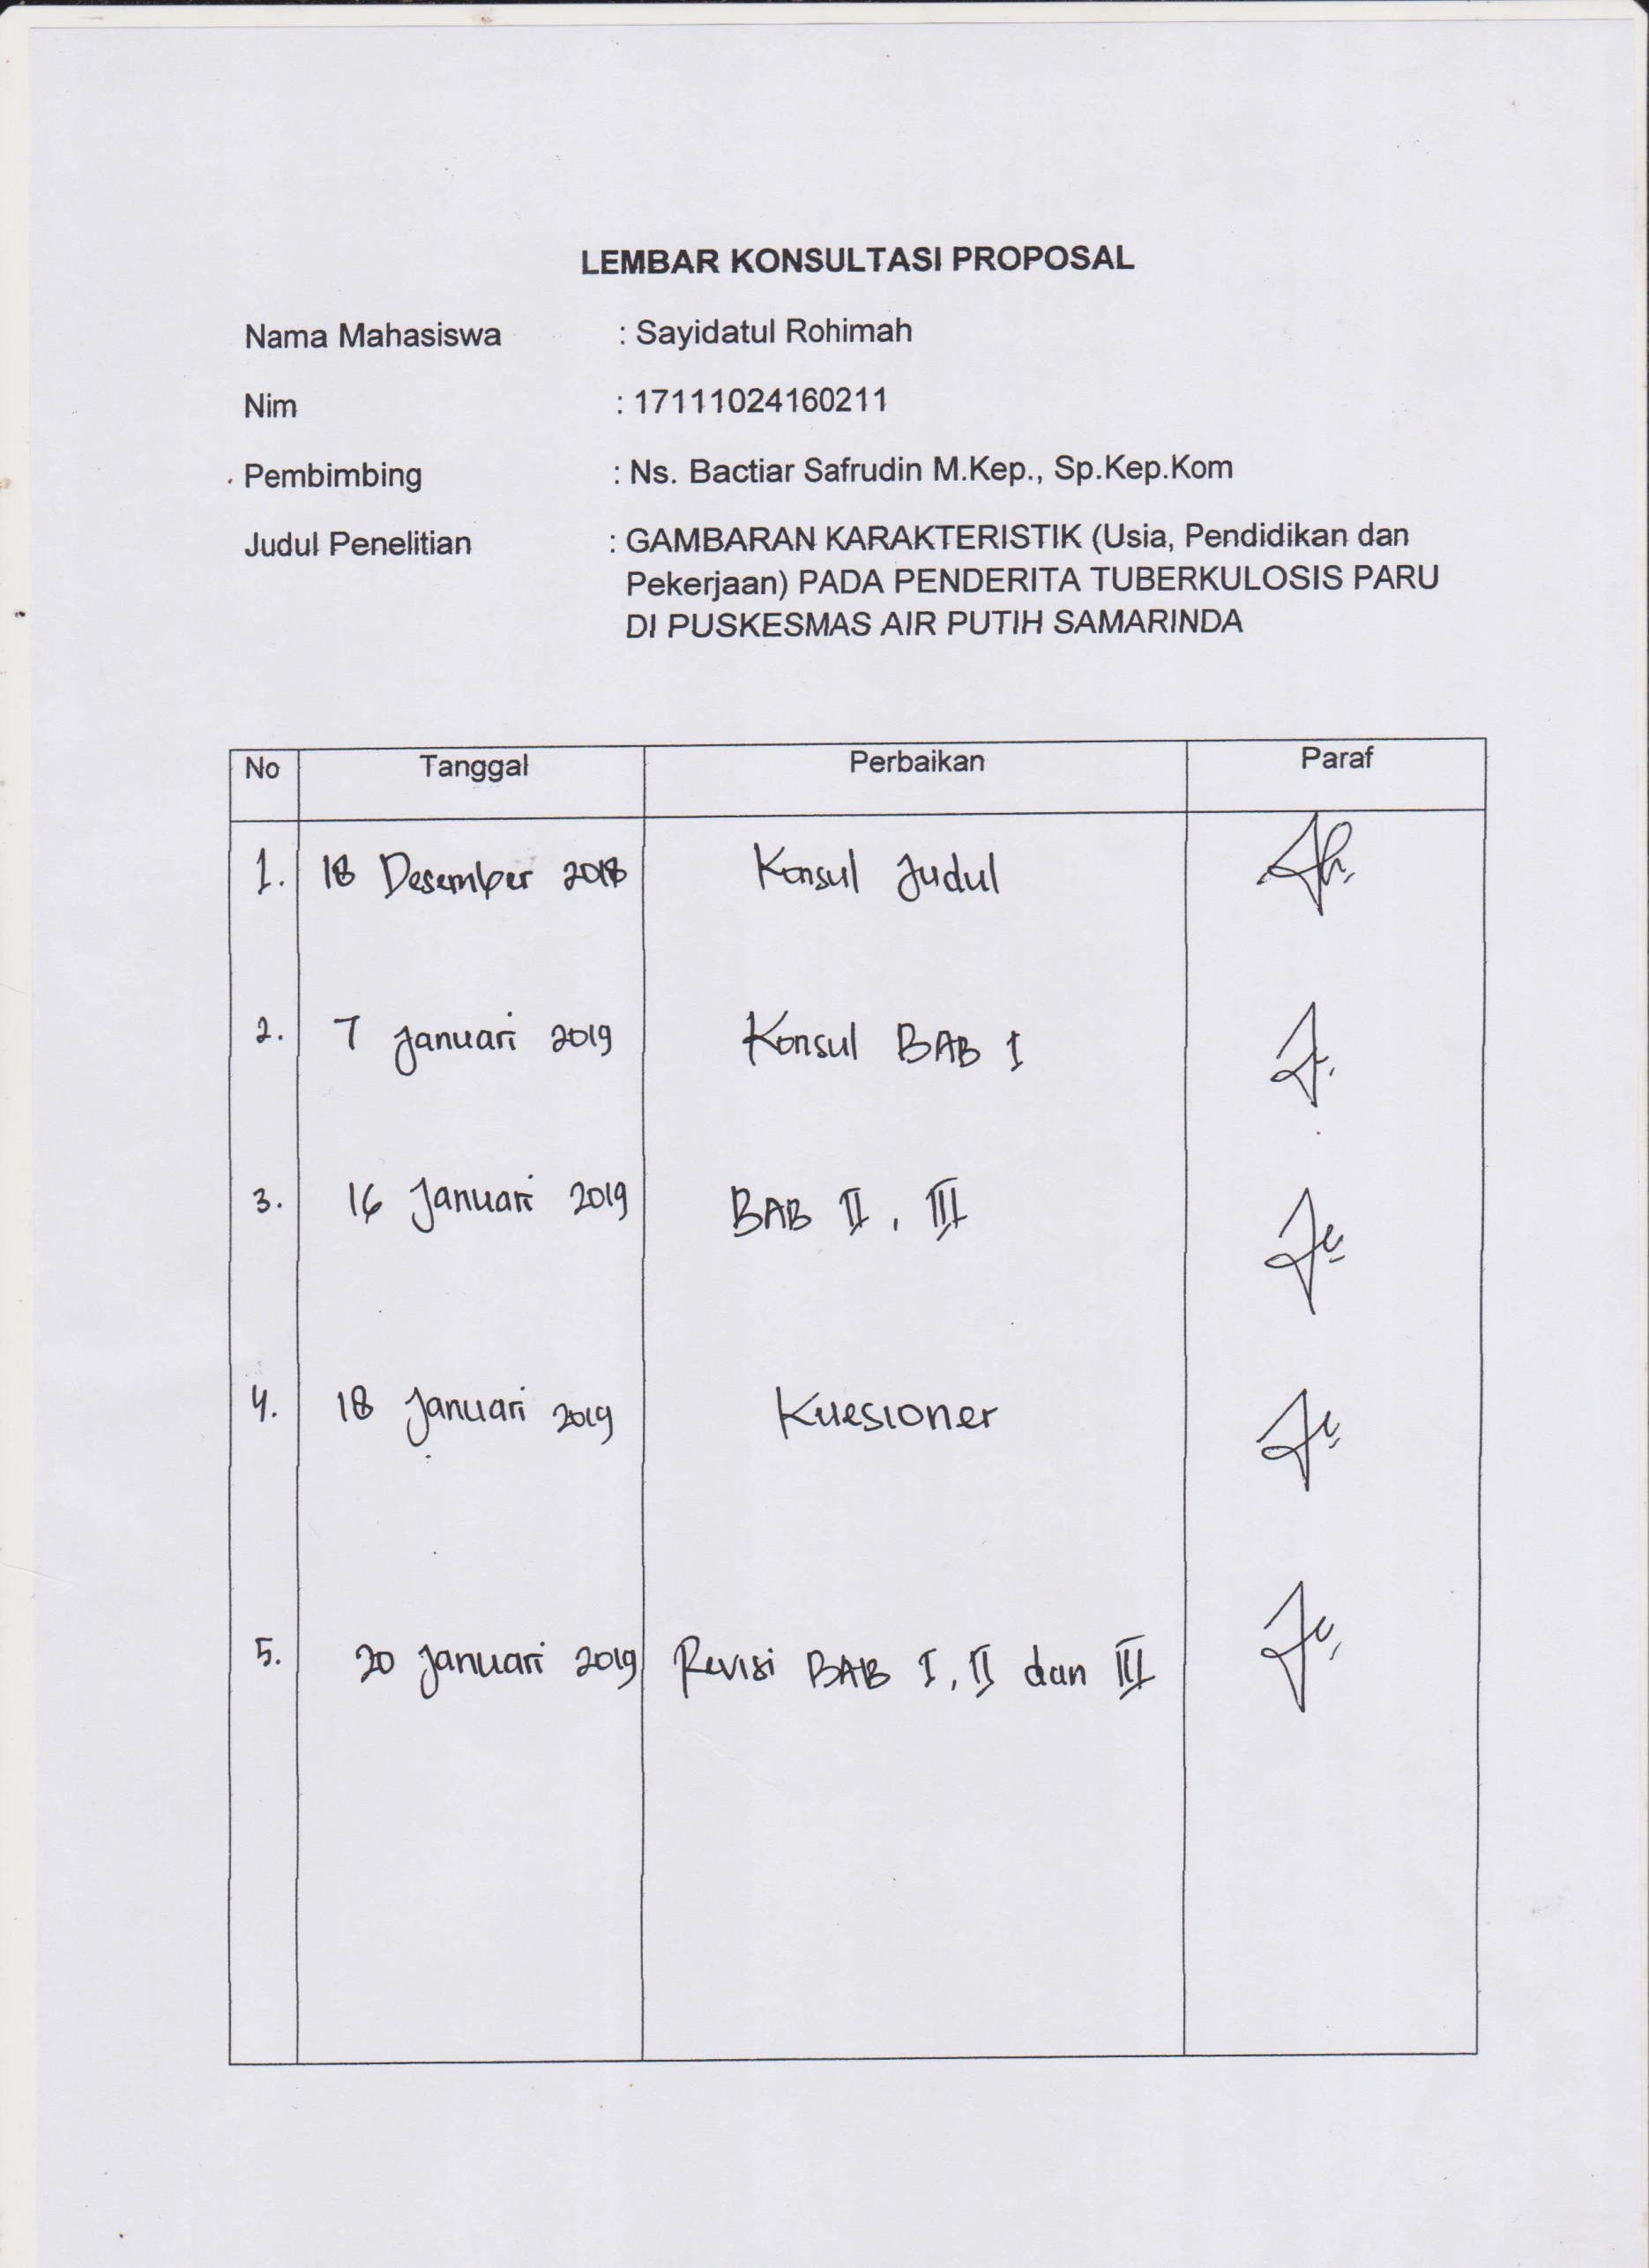 LEMBAR KONSULTASI PROPOSAL
Nama Mahasiswa : Sayidatul Rohimah
Nim : 17111024160211
Pembimbing : Ns. Bactiar Safrudin M.Kep., Sp.Kep.Kom
Judul Penelitian : GAMBARAN KARAKTERISTIK (Usia, Pendidikan dan
Pekerjaan) PADA PENDERITA TUBERKULOSIS PARU
DI PUSKESMAS AIR PUTIH SAMARINDA
No Tanggal Perbaikan Paraf
1. 18 Desember 2018 Konsul Judul
2. 7 Januari 2019 Konsul BAB I
3. 16 Januari 2019 BAB II, III
4. 18 Januari 2019 Kuesioner
5. 20 Januari 2019 Revisi BAB I, II dan III